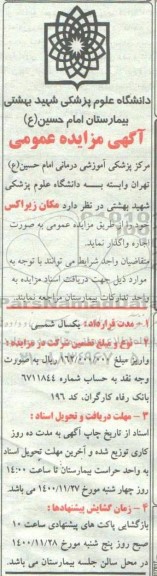 دانشگاه علوم پزشکی شهید بهشتی
بیمارستان امام حسین(ع)
آگهی مزایده عمومی
مرکز پزشکی آموزشی درمانی امام حسین(ع)
تهران وابسته به دانشگاه علوم پزشکی
شهید بهشتی در نظر دارد مکان زیراکس
از طریق مزایده عمومی به صورت
اجاره واگذار نماید.
متقاضیان واجد شرایط می توانند با توجه به
موارد ذیل جهت دریافت اسناد مزایده به
واحد تدارکات بیمارستان مراجعه نمایند.
۱- مدت قرارداد: یکسال شمسی
۲- نوع و مبلغ تضمین شرکت در مزایده:
واریز مبلغ ریال به صورت
وجه نقد به حساب شماره ۶۷۱۱۸۴۴
بانک رفاه کارگران، کد ۱۹۶
۳- مهلت دریافت و تحویل اسناد:
اسناد از تاریخ چاپ آگهی به مدت ده روز
کاری توزیع شده و آخرین مهلت تحویل اسناد
به واحد حراست بیمارستان تا ساعت ۱۴:۰۰
روز چهار شنبه مورخ ۱۴۰۰/۱۱/۲۷ می باشد.
۴- زمان گشایش پیشنهادها:
بازگشایی پاکت های پیشنهادی ساعت ۱۰
صبح روز پنج شنبه مورخ ۱۴۰۰/۱۱/۲۸
در محل سالن جلسه بیمارستان می باشد.